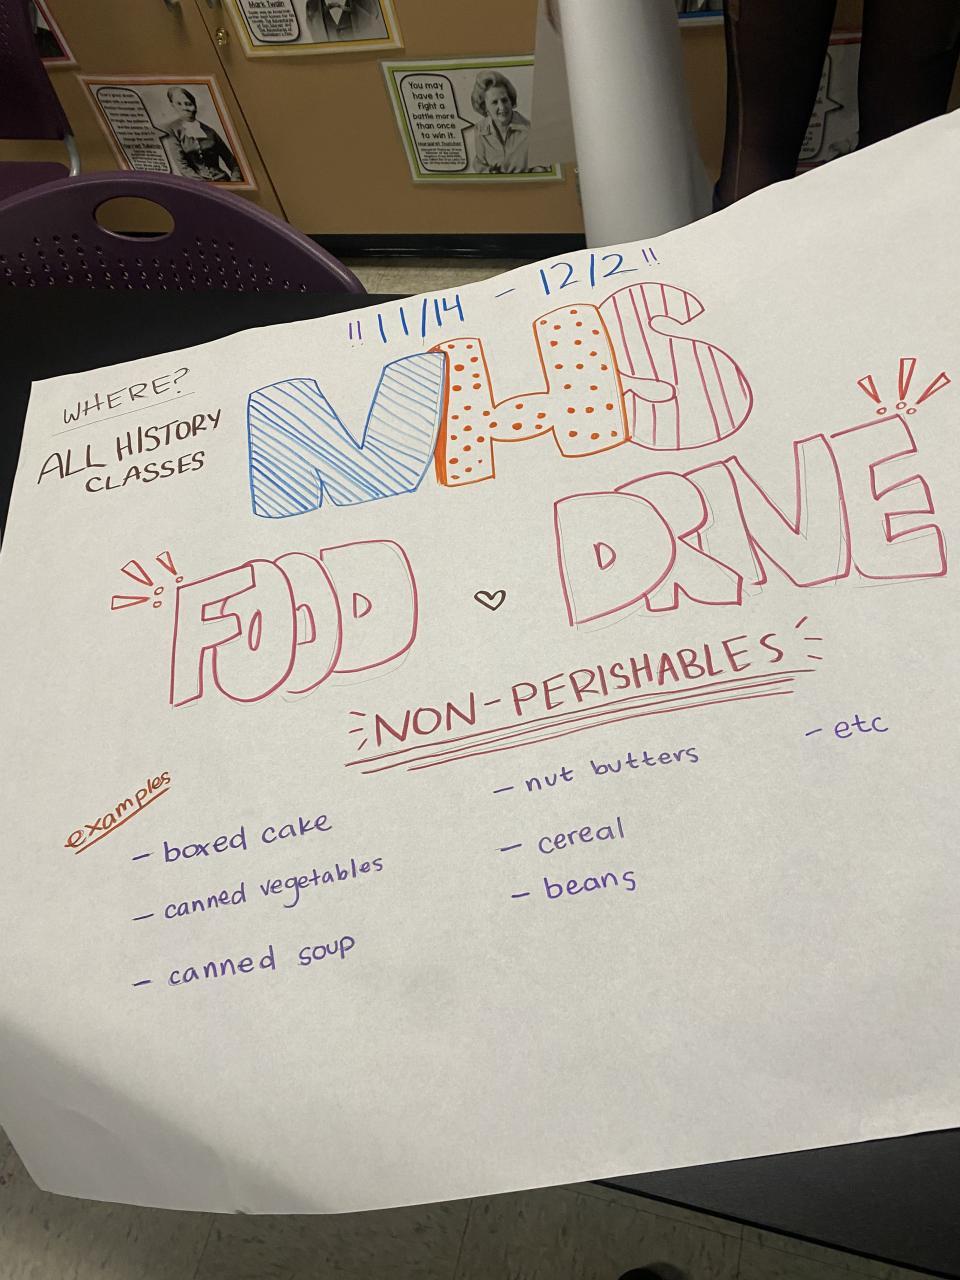 Mark Twain
You may
have to
fight a
battle more
than once
to win it.
Margaret Thatcher
Harriet Tubman
!! 11/14 - 12/2 !!
WHERE?
ALL HISTORY
CLASSES
NHS
FOOD ♡ DRIVE
NON-PERISHABLES
examples
- boxed cake
- canned vegetables
- canned soup
- nut butters
- cereal
- beans
- etc